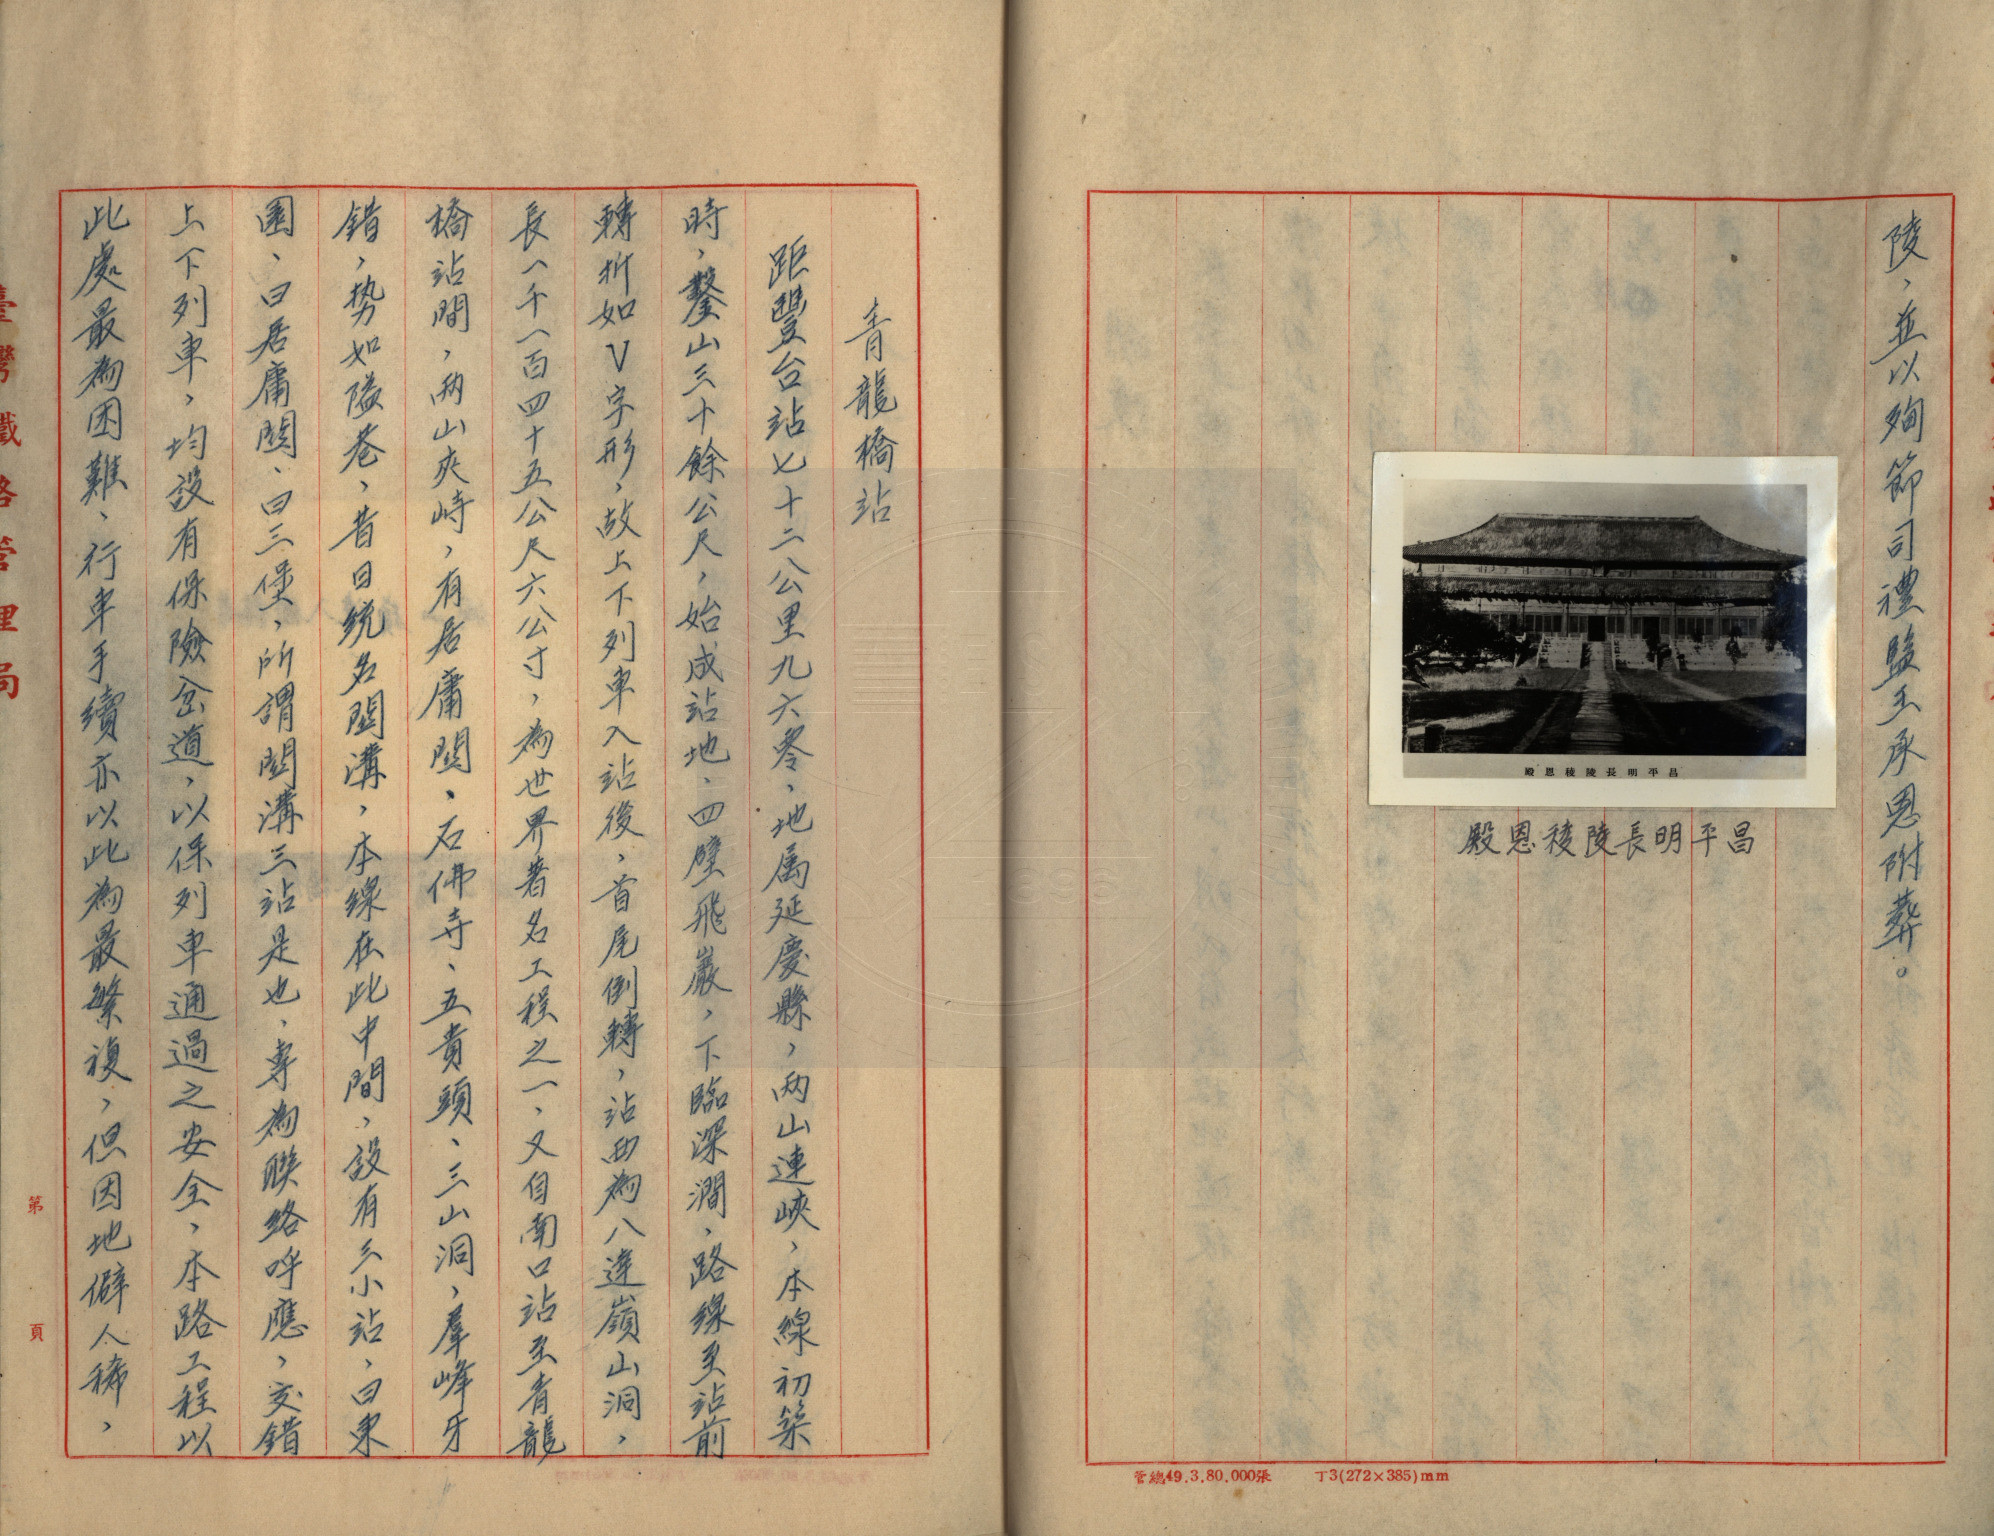 陵，並以殉節司禮監王承恩附葬。
昌平明長陵稜恩殿
昌平明長陵稜恩殿
管總49.3.80.000張 丁3(272×385)mm
青龍橋站
距豐台站七十二公里九六零，地属延慶縣，两山連峽，本線初築
時，鑿山三十餘公尺，始成站地，四壁飛巖，下臨深澗，路線至站前
轉折如V字形，故上下列車入站後，首尾倒轉，站西為八達嶺山洞，
長一千一百四十五公尺六公寸，為世界著名工程之一，又自南口站至青龍
橋站間，两山夾峙，有居庸關、石佛寺、五貴頭、三山洞，羣峰牙
錯，势如隘巷，昔日统名關溝，本線在此中間，設有三小站，曰東
園、曰居庸關、曰三堡，所謂關溝三站是也，專為聯絡呼應，交錯
上下列車，均設有保險岔道，以保列車通過之安全，本路工程以
此處最為困難，行車手續亦以此為最繁複，但因地僻人稀，
臺灣鐵路管理局
第 頁